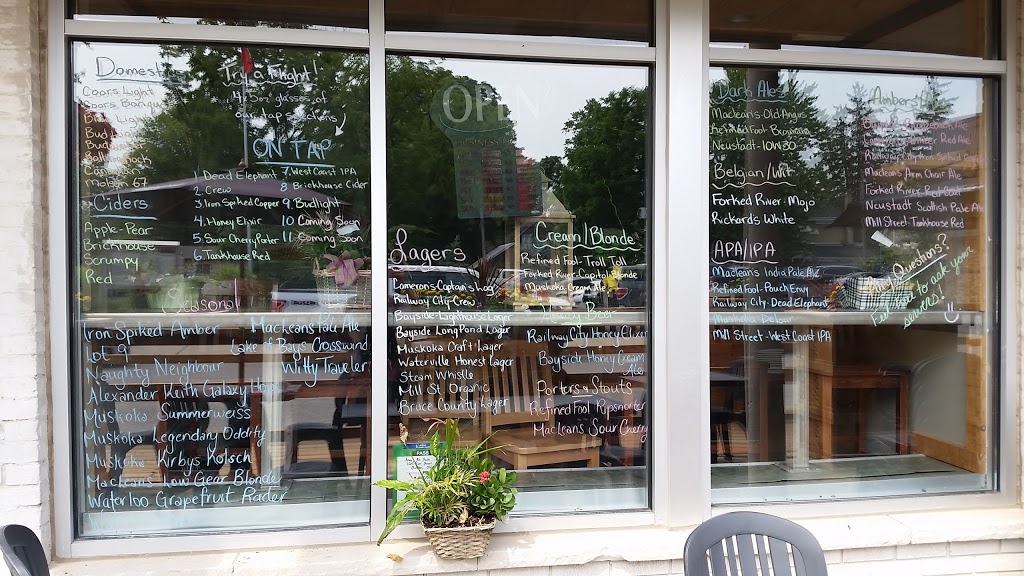 Coors Light
Coors Banquet
Bud Light
Molson 67
Ciders
Apple-Pear
Brickhouse
Scrumpy
Red
Try a Flight!
4 5oz glasses of
our tap selections
ON TAP
1 Dead Elephant
2. Crew
3. Iron Spiked Copper
4. Honey Elixir
5. Sour Cherry Porter
6. Tankhouse Red
7. West Coast IPA
8 Brickhouse Cider
9 Budlight
10 Coming Soon
11 Coming Soon
Seasonal
Iron Spiked Amber
Lot 9
Naughty Neighbour
Alexander Keith Galaxy Hops
Muskoka Summerweiss
Muskoka Legendary Oddity
Muskoka Kirbys Kolsch
Macleans Low Gear Blonde
Waterloo Grapefruit Radler
Macleans Pale Ale
Lake of Bays Crosswind
Witty Traveler
OPEN
Lagers
Railway City-Crew
Bayside-Lighthouse Lager
Bayside Long Pond Lager
Muskoka Craft Lager
Waterville Honest Lager
Steam Whistle
Mill St. Organic
Bruce County Lager
Cream/Blonde
Refined Fool-Troll Toll
Forked River-Capitol Blonde
Muskoka Cream Ale
Honey Beer
Railway City Honey Elixir
Bayside Honey Cream
Ale
Porters & Stouts
Refined Fool Ripsnorter
MacLeans Sour Cherry
PASS
Dark Ales
Macleans-Old Angus
Neustadt-10W30
Belgian/Wit
Forked River-Mojo
Rickards White
APA/IPA
Macleans India Pale Ale
Refined Fool-Pouch Envy
Railway City-Dead Elephant
Mill Street-West Coast IPA
Ambers/
Macleans Farm Chart Ale
Forked River-Red Coat
Neustadt Scottish Pale Ale
Mill Street-Tankhouse Red
Any Questions?
Feel free to ask your
server!